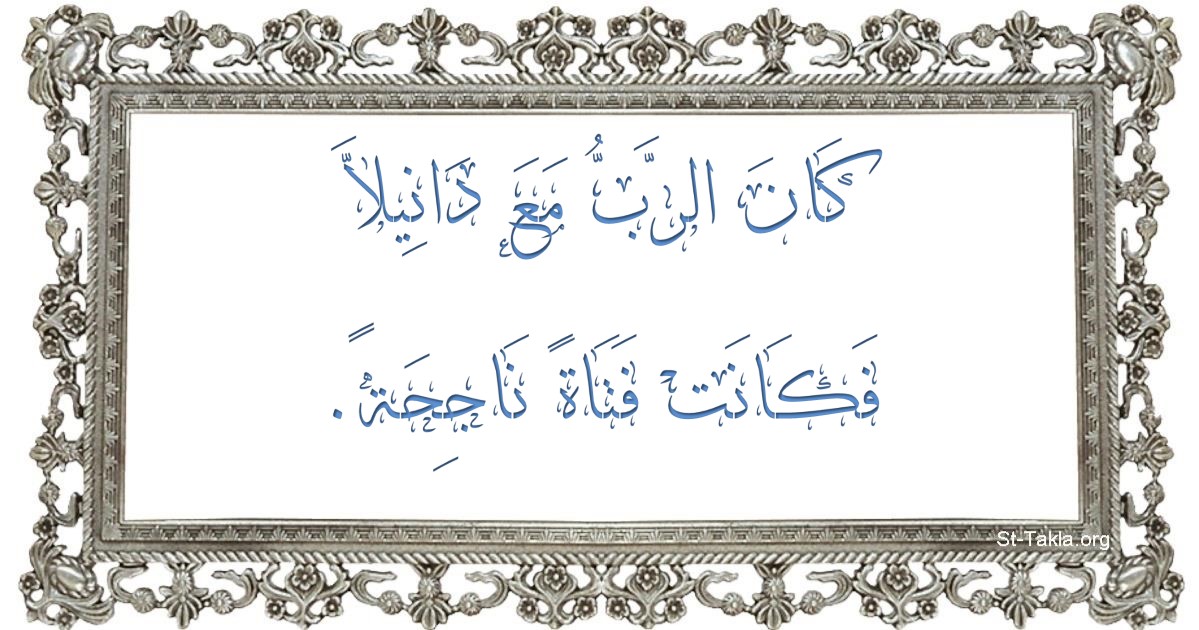 كَانَ الرَّبُّ مَعَ دَانِيلاَّ
فَكَانَتْ فَتَاةً نَاجِحَةً.
St-Takla.org